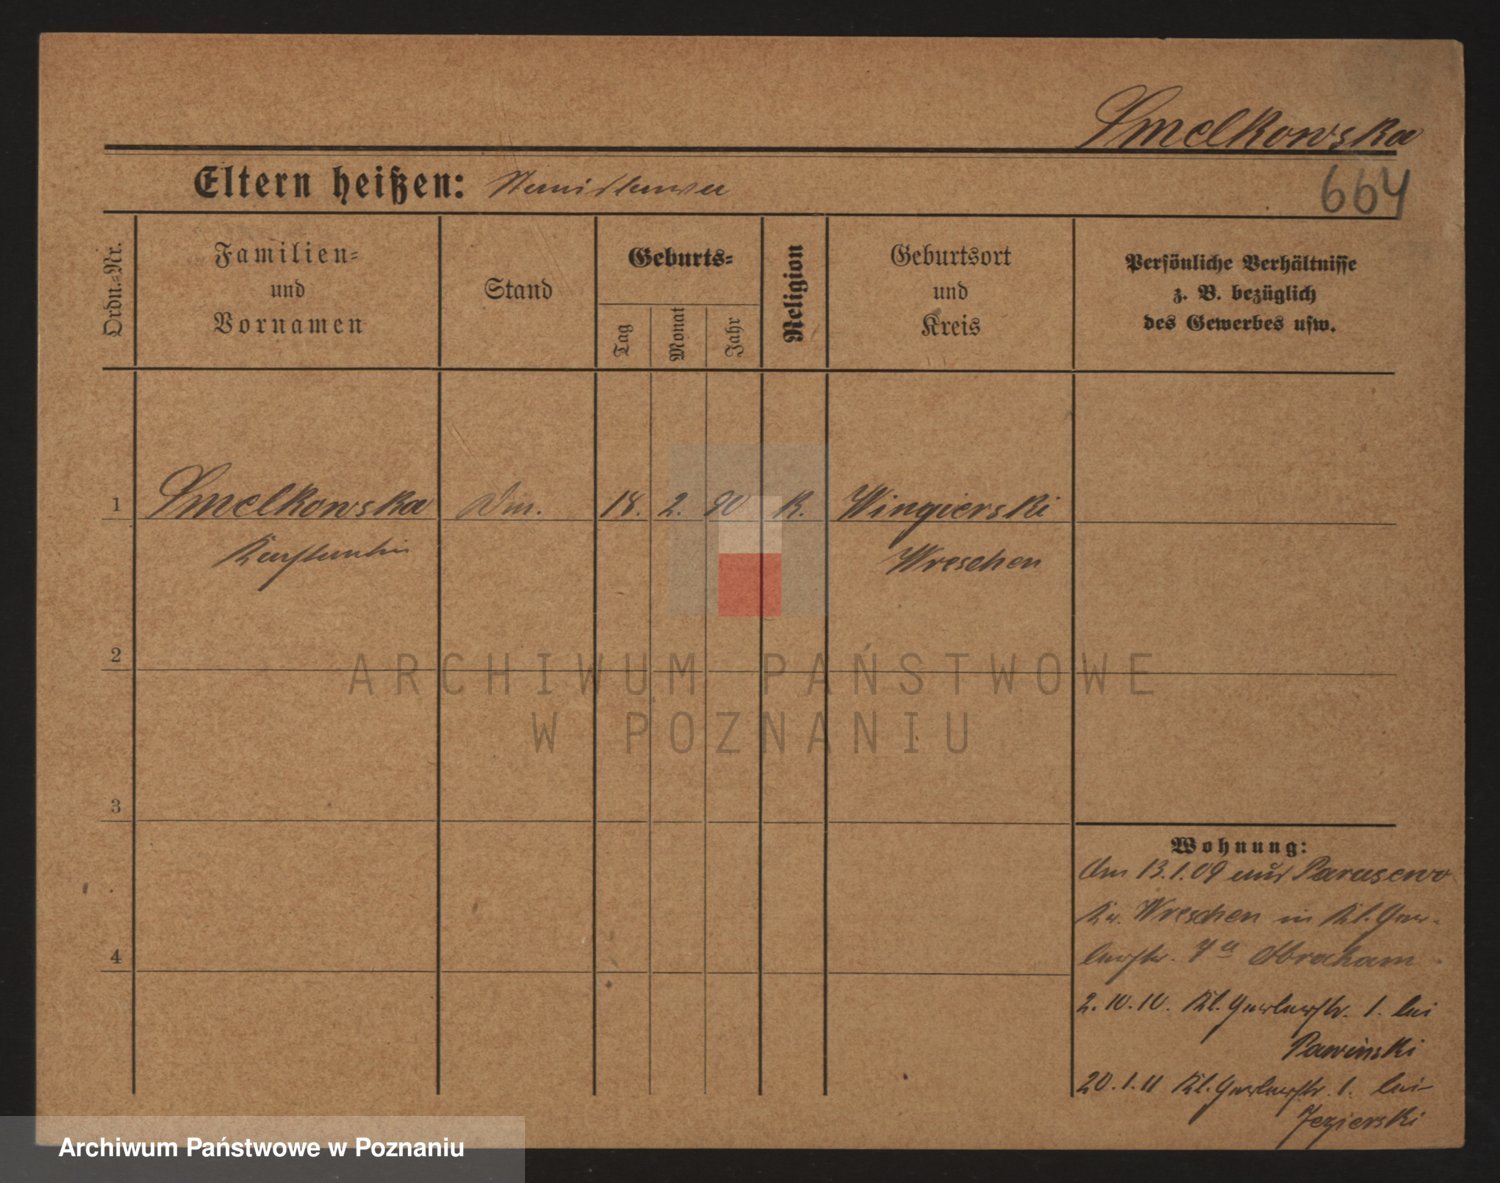 Smelkowska
Eltern heißen: Stanislawa
664
Ordn.=Nr.
Familien=
und
Vornamen
Stand
Geburts=
Tag
Monat
Jahr
Religion
Geburtsort
und
Kreis
Persönliche Verhältnisse
z. B. bezüglich
des Gewerbes usw.
1 Smelkowska 18. 2. 90 K. Wingierski
Wreschen
2
3
4
Wohnung:
Am 13.1.09 aus Parusewo
Kr. Wreschen in Kl. Ger-
berstr. 7a Abraham
2.10.10. Kl. Gerberstr. 1. bei
Pawinski
20.1.11 Kl. Gerberstr. 1. bei
Jezierski
ARCHIWUM PAŃSTWOWE
W POZNANIU
Archiwum Państwowe w Poznaniu